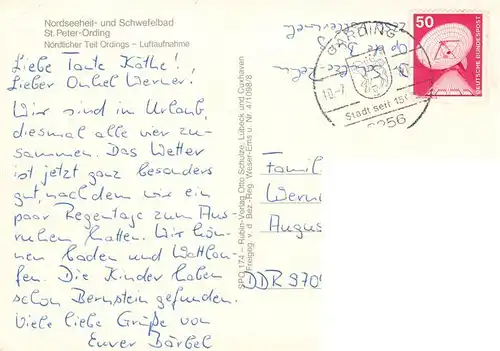 Nordseeheil- und Schwefelbad
St. Peter-Ording
Nördlicher Teil Ordings - Luftaufnahme
Liebe Tante Käthe!,
Lieber Onkel Werner!
Wir sind in Urlaub,
diesmal alle vier zu-
sammen. Das Wetter
ist jetzt ganz besonders
gut, nachdem wir ein
paar Regentage zum Aus-
ruhen hatten. Wir kön-
nen baden und Wattlau-
fen. Die Kinder haben
schon Bernstein gefunden.
Viele liebe Grüße von
Eurer Bärbel
SPO 174 – Rubin-Verlag Otto Schulze, Lübeck und Cuxhaven
Freigeg. v. d. Bez.-Reg. Weser-Ems u. Nr. 4/1098/8
GARDING
Stadt seit 15
2256
50
DEUTSCHE BUNDESPOST
Famil
Wern
Augus
DDR 970